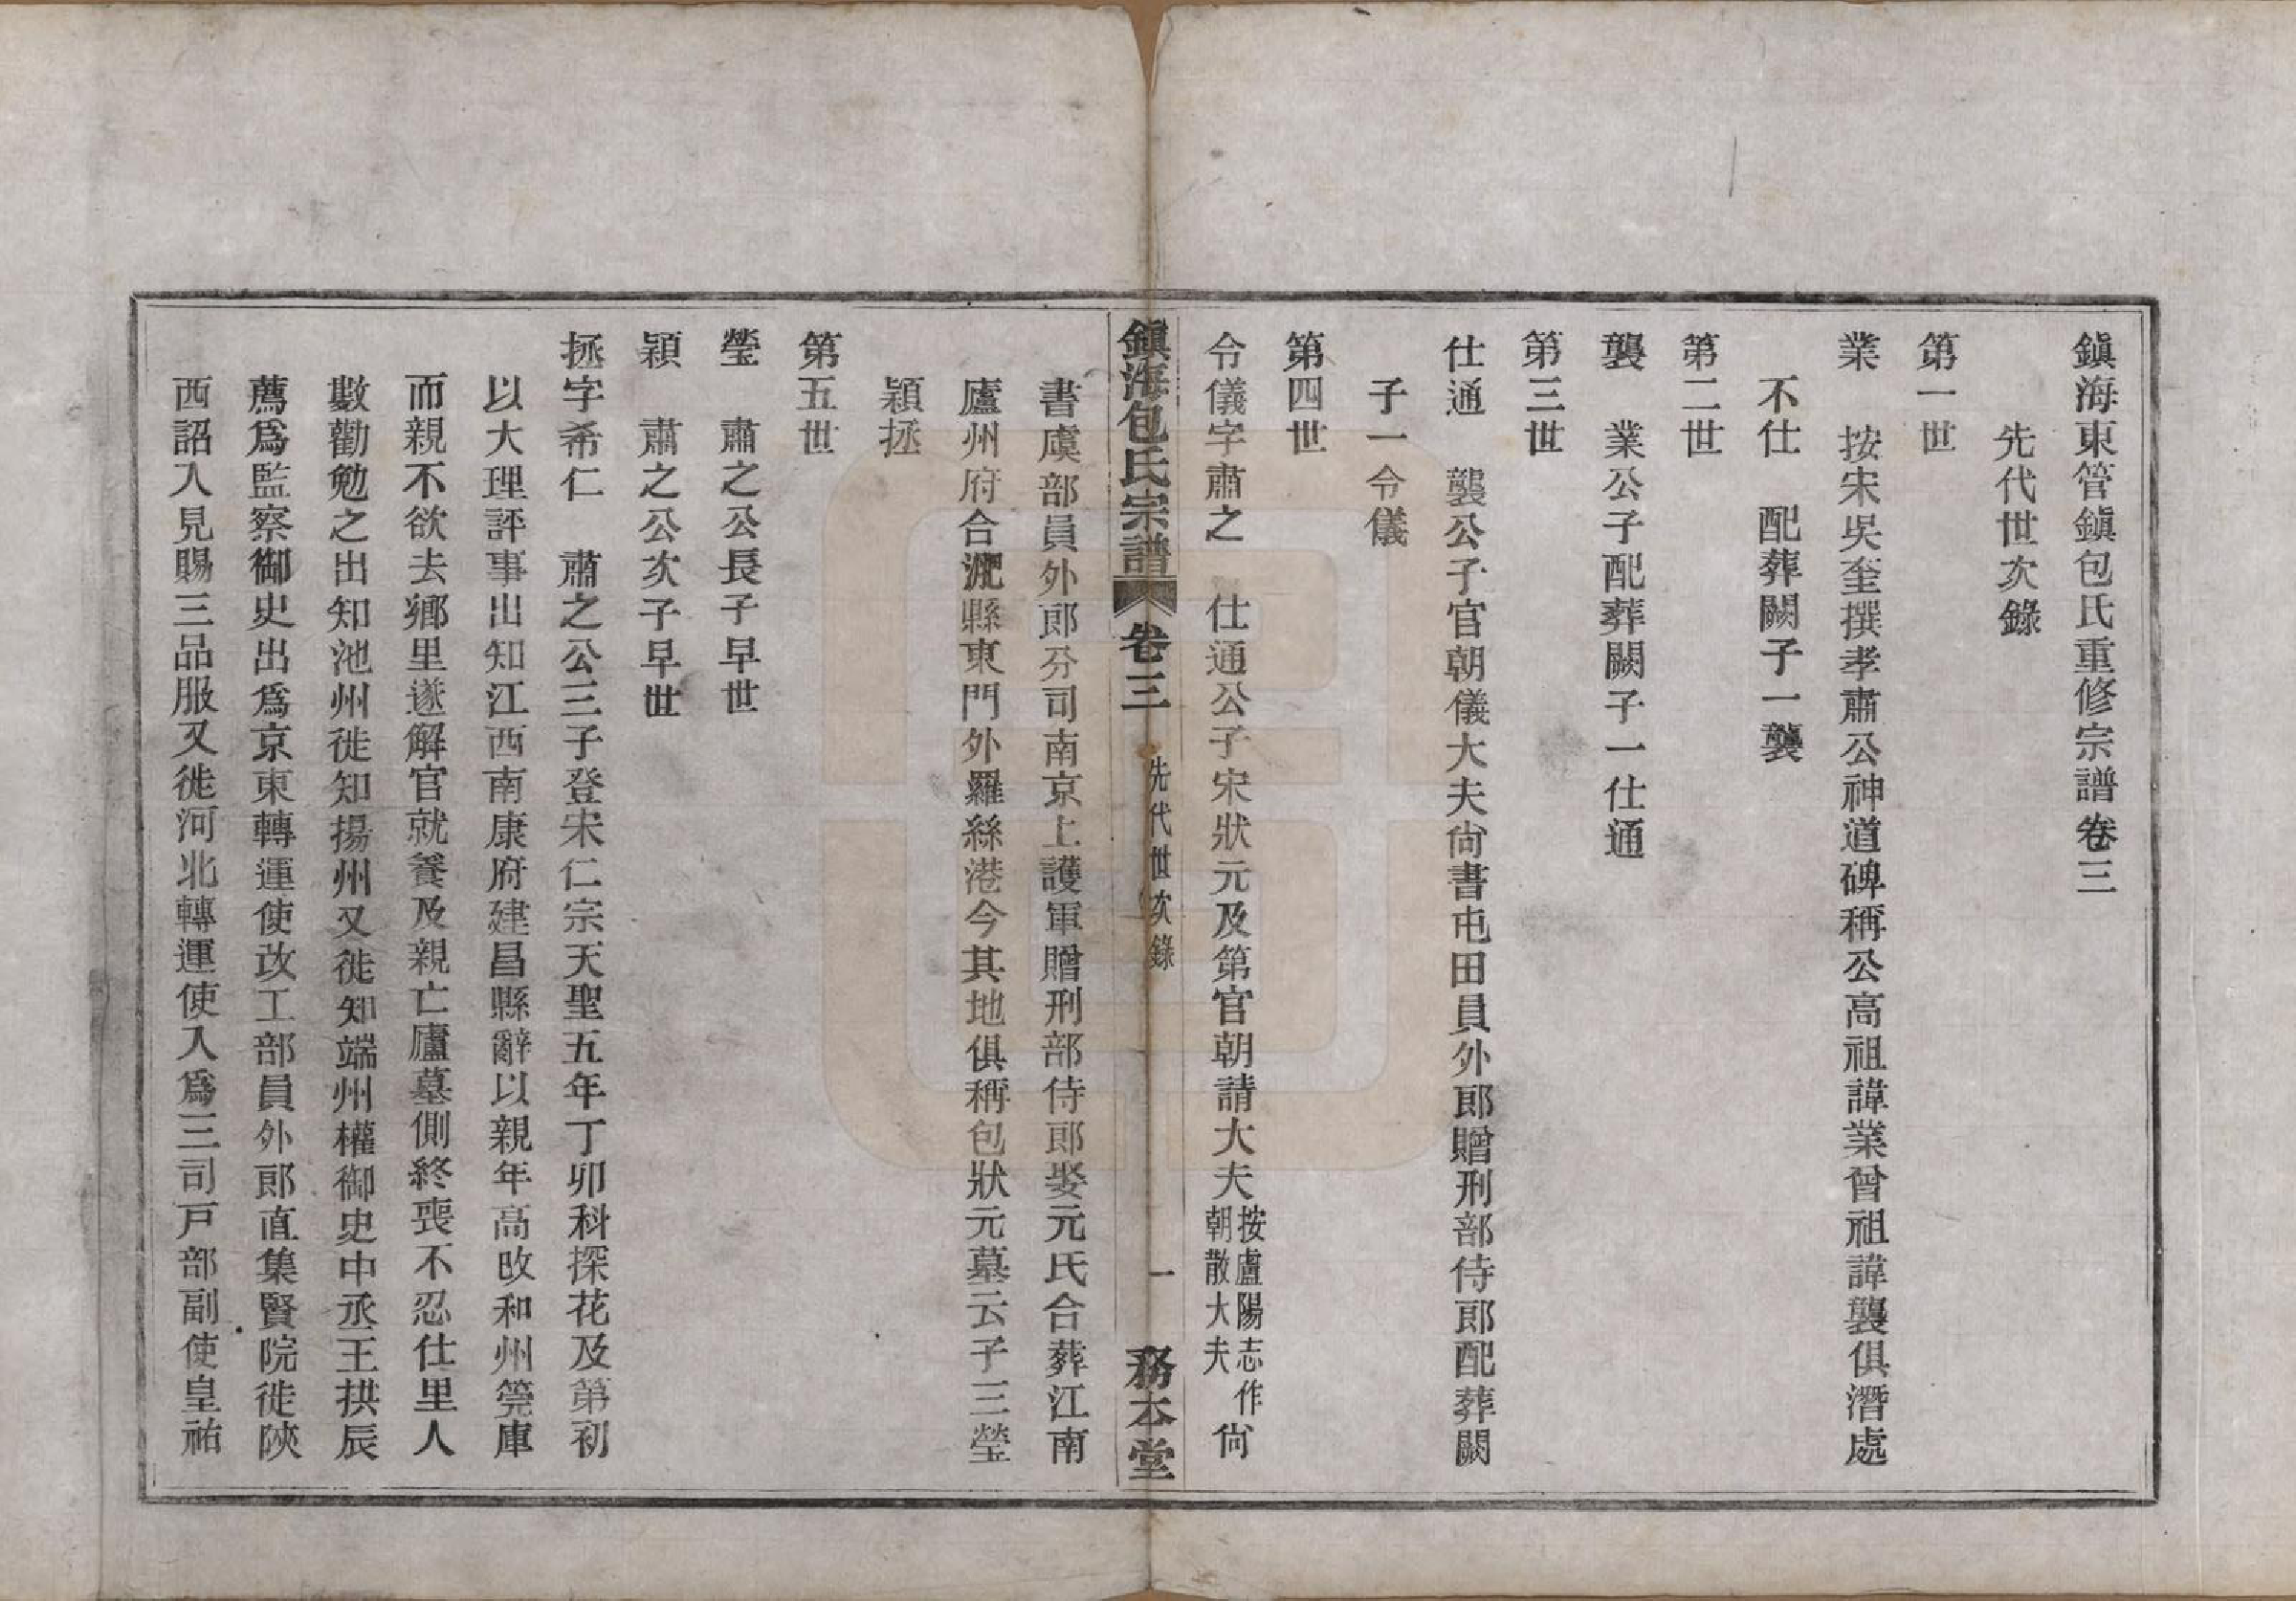 鎮海東管鎮包氏重修宗譜卷三
先代世次錄
第一世
業　按宋吳奎撰孝肅公神道碑稱公高祖諱業曾祖諱襲俱潛處
不仕　配葬闕子一襲
第二世
襲　業公子配葬闕子一仕通
第三世
仕通　襲公子官朝儀大夫尙書屯田員外郎贈刑部侍郎配葬闕
子一令儀
第四世
令儀字肅之　仕通公子宋狀元及第官朝請大夫按盧陽志作朝散大夫尙
書虞部員外郎分司南京上護軍贈刑部侍郎娶元氏合葬江南
廬州府合淝縣東門外羅絲港今其地俱稱包狀元墓云子三瑩
穎拯
鎮海包氏宗譜　卷三　先代世次錄　一　務本堂
第五世
瑩　肅之公長子早世
穎　肅之公次子早世
拯字希仁　肅之公三子登宋仁宗天聖五年丁卯科探花及第初
以大理評事出知江西南康府建昌縣辭以親年高改和州筦庫
而親不欲去鄉里遂解官就養及親亡廬墓側終喪不忍仕里人
數勸勉之出知池州徙知揚州又徙知端州權御史中丞王拱辰
薦爲監察御史出爲京東轉運使改工部員外郎直集賢院徙陝
西詔入見賜三品服又徙河北轉運使入爲三司戶部副使皇祐